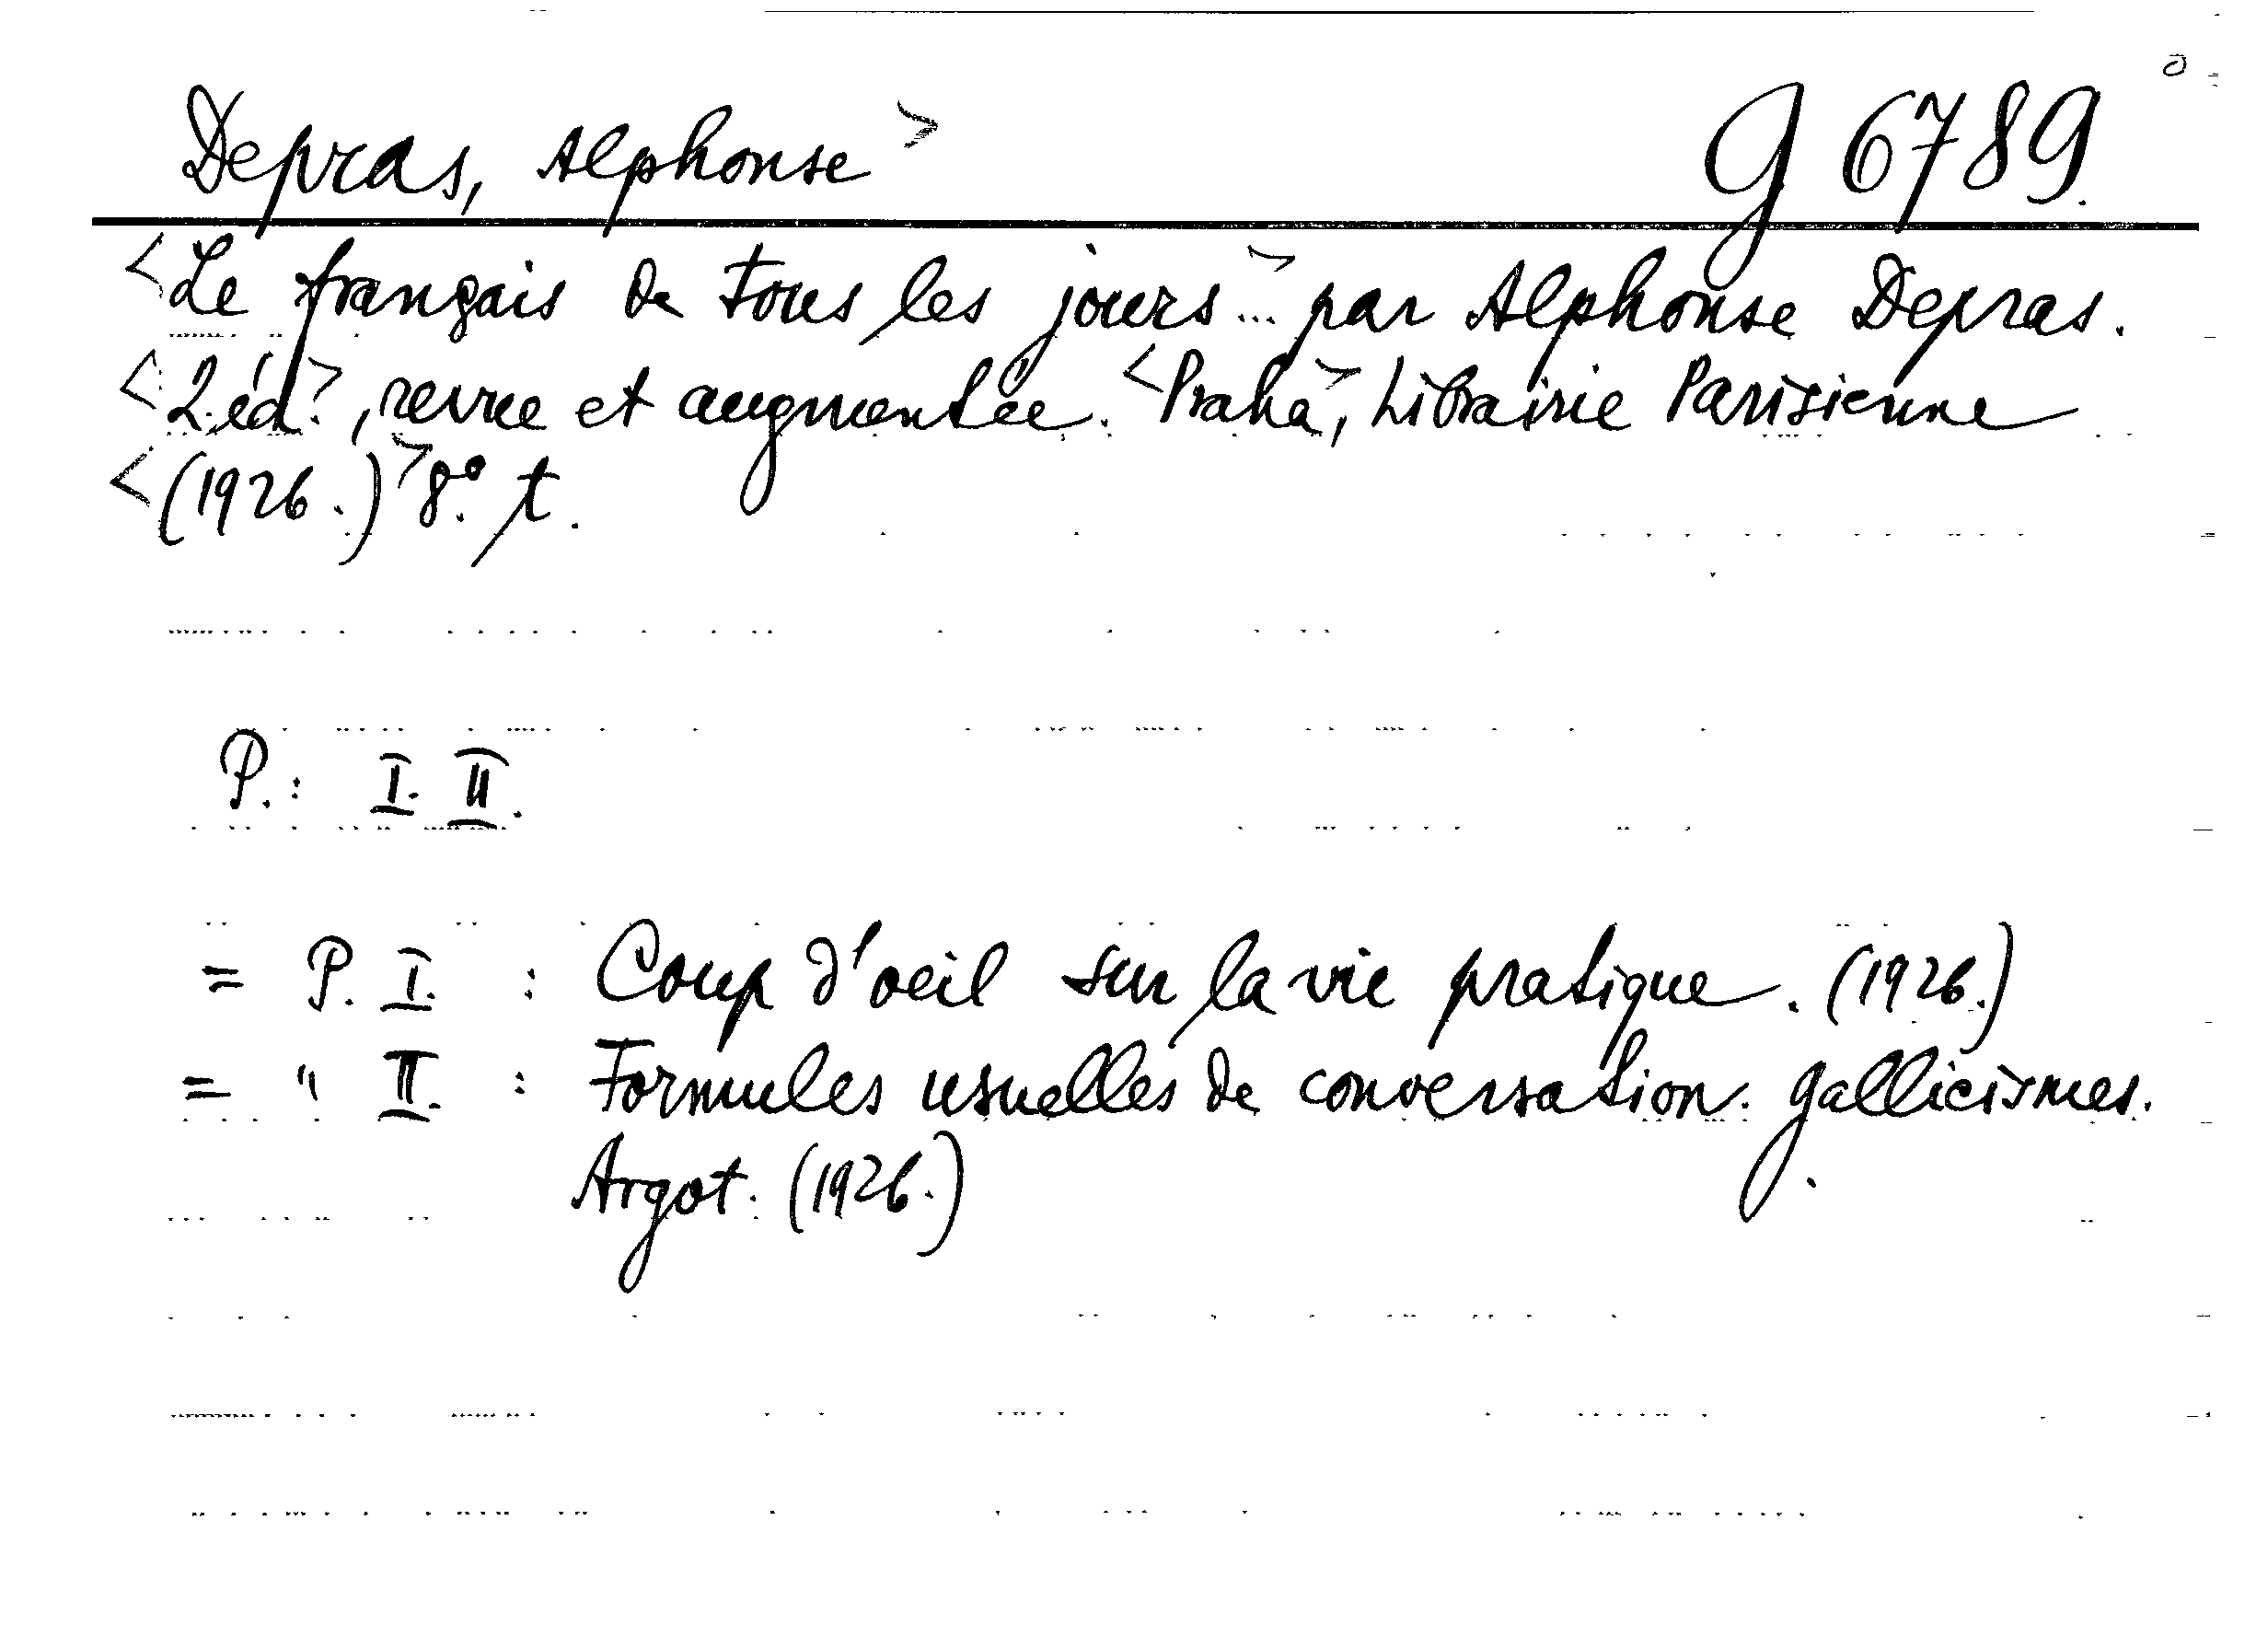 Depras, Alphonse> G 6789.
<Le français de tous les jours...> par Alphonse Depras.
<2.éd.>, revue et augmentée. <Praha>, Librairie Parisienne
<(1926.)> 8°. t.
P.: I. II.
= P. I. : Coup d'oeil sur la vie pratique. (1926.)
= " II. : Formules usuelles de conversation. Gallicismes.
Argot. (1926.)